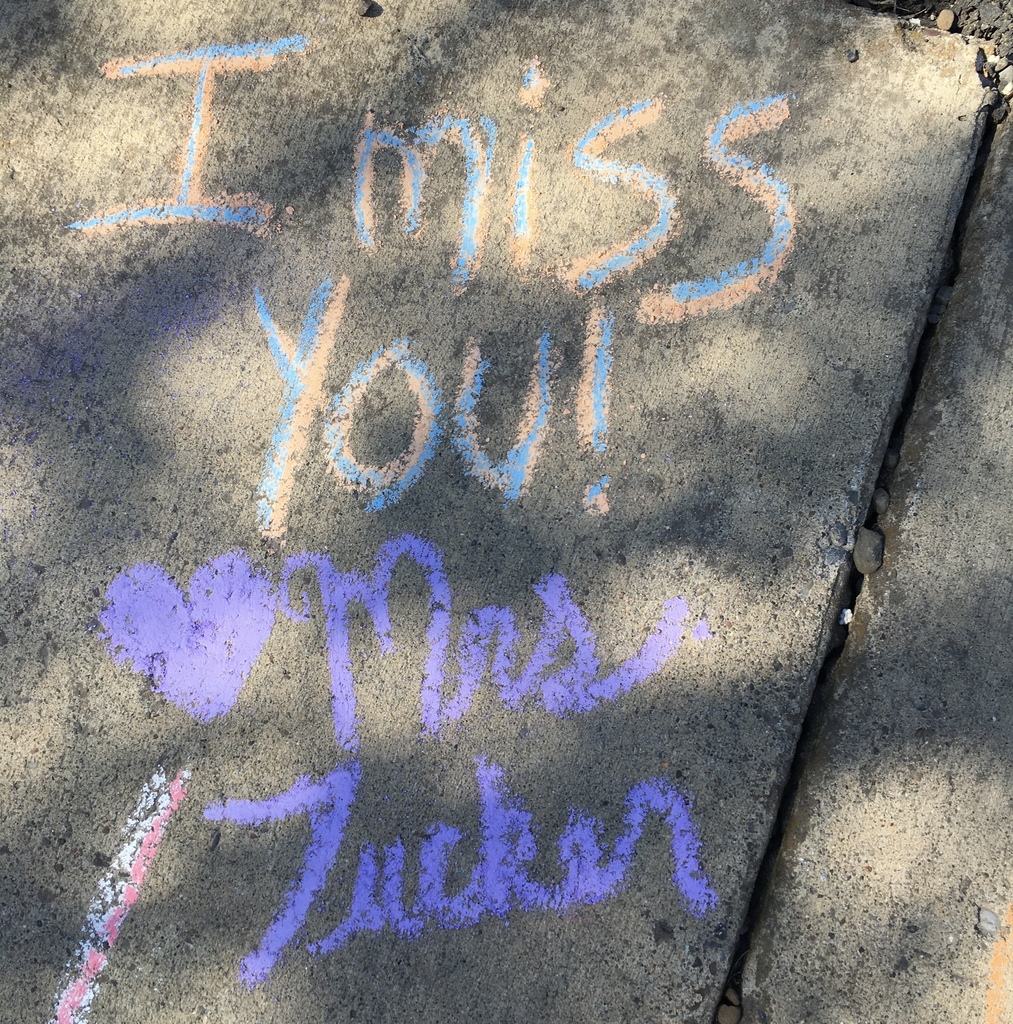 I miss
You!
♥ Mrs.
Tucker